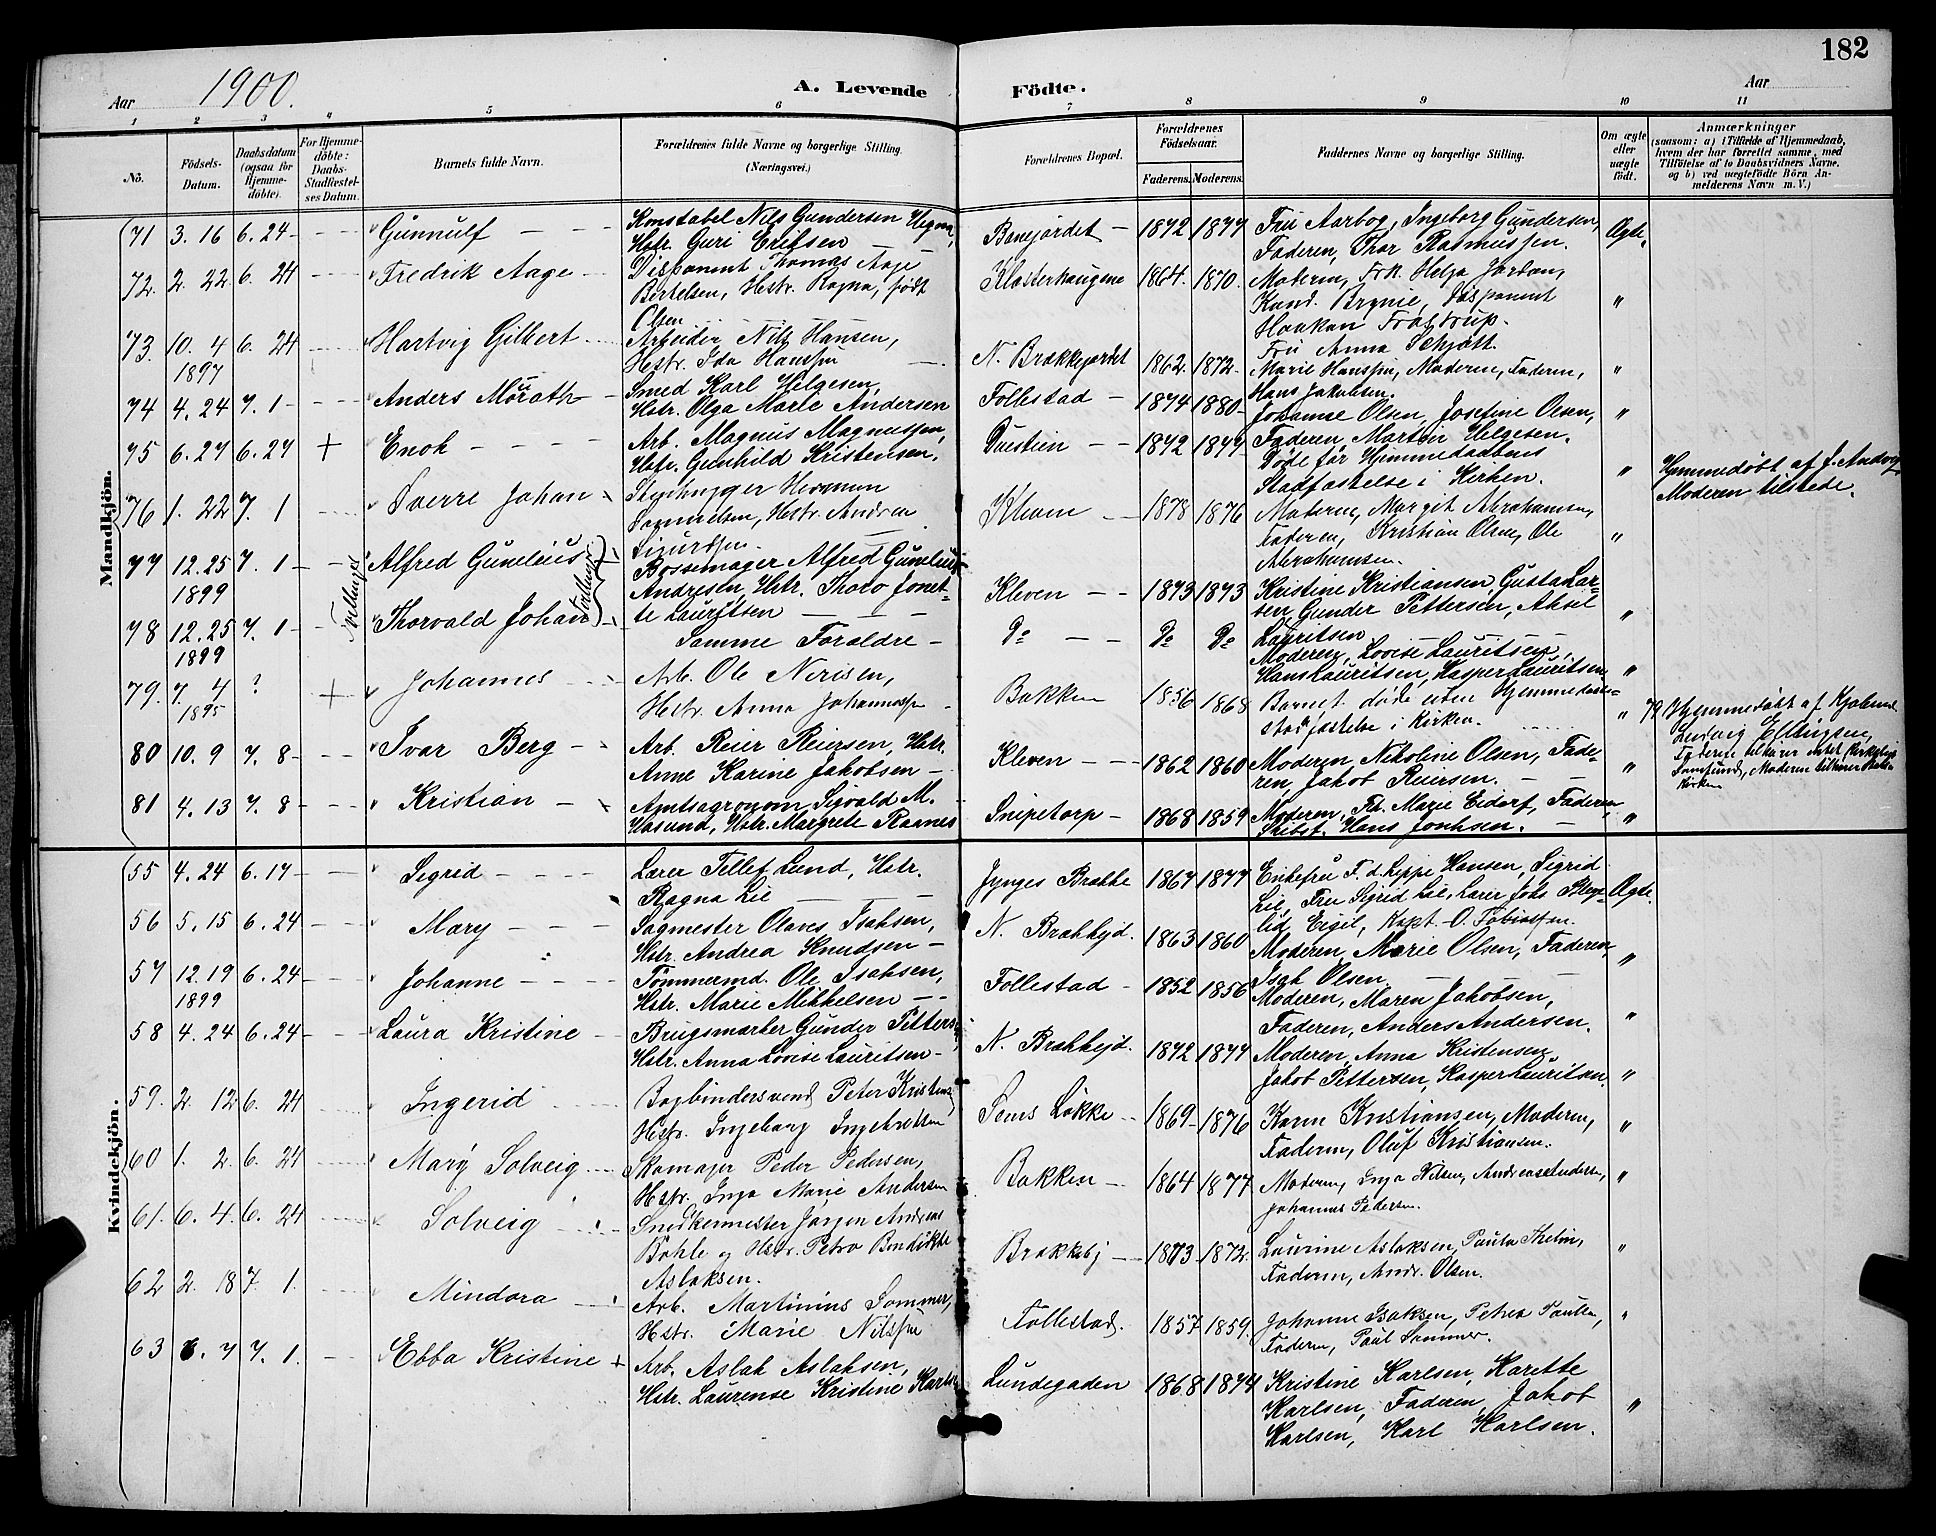 182
Aar 1900.
A. Levende Födte.
Aar
1 2 3 4 5 6 7 8 9 10 11
No.
Födsels-Datum.
Daabsdatum (ogsaa for Hjemme-döbte).
For Hjemme-döbte: Daabs-Stadfæstel-ses Datum.
Barnets fulde Navn.
Forældrenes fulde Navne og borgerlige Stilling. (Næringsvei.)
Forældrenes Bopæl.
Forældrenes Födselsaar.
Faderens. Moderens.
Faddernes Navne og borgerlige Stilling.
Om ægte eller uægte födt.
Anmærkninger
(saasom: a) i Tilfælde af Hjemmedaab, hvem der har forrettet samme, med Tilföielse af to Daabsvidners Navne, og b) ved uægtefödte Börn An-melderens Navn m. V.)
Mandkjön.
71 3. 16 6. 24 Gunnulf
Konstabel Nils Gundersen
Hstr. Guri Eriksen
1872 1877
Fru Aarbog, Ingeborg Gundersen,
Faderen, Thor Rasmussen.
Ægte.
72. 2. 22 6. 24 Fredrik Aage
Disponent Thomas Aage
Bertelsen, Hstr. Ragna, født
Olsen
Klosterhaugene 1864. 1870.
Moderen, Frk. Helga Jordan,
Kand. Brynie, Disponent
Haakon Frostrup.
Fru Anna Schjøtt.
"
73. 10. 4 1897 6. 24 Hartvig Gilbert
Arbeider Nils Hansen,
Hstr. Ida Hanssen
N. Brækkejordet 1862. 1872.
Marie Hanssen, Moderen, Faderen,
Hans Jakobsen.
"
74 4. 24 7. 1 Anders Mörath
Smed Karl Helgesen,
Hstr. Olga Marie Andersen
Follestad 1874 1880
Johanne Olsen, Josefine Olsen,
Faderen, Martin Helgesen.
"
75 6. 27 6. 27 + Enok
Arb. Magnus Magnussen,
Hstr. Gunhild Kristensen.
1872 1877
Døde før Hjemmedaabens
Stadfæstelse i Kirken.
"
Hjemmedøbt af J.
Moderen tilstede.
76 1. 22 7. 1 Sverre Johan
Herman
Samuelsen, Hstr. Andrea
Sigurdsen.
Kleven 1878 1876
Moderen, Margit Abrahamsen,
Faderen, Kristian Olsen, Ole
Abrahamsen.
"
77 12. 25 1899 7. 1 Alfred Gunelius
Tvillinger
Bossemager Alfred Gunelius
Andresen, Hstr. Thora Jonet-
te Lauritsen
Kleven 1873 1873
Kristine Kristiansen, Gusta Lar-
sen, Gunder Pettersen, Aksel
Lauritsen
"
78 12. 25 1899 7. 1 Thorvald Johan
Samme Foraldre
Do Do Do
Moderen, Lovise Lauritsen,
Hans Lauritsen, Kasper Lauritsen
"
79. 7. 4 1895 ? + Johannes
Arb. Ole Nirisen,
Hstr. Anna Johannessen
Bakken 1856 1868
Barnet døde uden Hjemmedaabs-
stadfæstelse i Kirken.
"
79 Hjemmedøbt af
Ludvig Ellingsen,
Faderen tilhører intet Kirkelig
Samfund, Moderen tilhører
Kirken
80 10. 9 7. 8 Ivar Berg
Arb. Reier Reiersen, Hstr.
Anne Karine Jakobsen
Kleven 1862 1860
Moderen, Nikoline Olsen, Fade-
ren, Jakob Reiersen.
"
81 4. 13 7. 8 Kristian
Amtsagronom Sigvald M.
Hasund, Hstr. Margrete Rasmes
Snipetorp 1868 1859
Moderen, Frk. Marie Eidorf, Faderen,
Skibst. Hans Jonhsen.
"
Kvindekjön.
55 4. 24 6. 17 Sigrid
Lærer Tellef Lund, Hstr.
Ragna Lie
Jynges Brække 1867 1877
Enkefru F. d. Lippe Hansen, Sigrid
Lie, Fru Sigrid Lie, Lærer Johs
lid Eigil, Kapt. O. Tobiassen.
Ægte.
56 5. 15 6. 24 Mary
Sagmester Olaves Isaksen,
Hstr. Andrea Knudsen
N. Brækkejd. 1863 1860
Moderen, Marie Olsen, Faderen,
Isak Olsen
"
57 12. 19 1899 6. 24 Johanne
Tømmermd. Ole Isaksen,
Hstr. Marie Mikkelsen
Follestad 1852 1856
Moderen, Maren Jakobsen,
Faderen, Anders Andersen.
"
58 4. 24 6. 24 Laura Kristine
Brugsmærker Gunder Petters
Hstr. Anna Lovise Lauritsen
N. Brækkejd. 1872 1877
Moderen, Anna Kristensen
Jakob Pettersen, Kasper Lauritsen.
"
59. 2. 12 6. 24 Ingerid
Bogbindersvend Peter Kristens
Hstr. Ingeborg Ingebretsen
Sems Løkke 1869 1876
Karen Kristiansen, Moderen,
Faderen, Oluf Kristiansen.
"
60 1. 2. 6. 24 Mary Solveig
Skomager Peder Pedersen,
Hstr. Inga Marie Andersen
Bakken 1864 1877
Moderen, Inga Nilsen, Andreas Anders.,
Johannes Pedersen.
"
61. 6. 4. 6. 24 Solveig
Snedkermester Jørgen Andreas
Bøhle og Hstr. Petra Bendikte
Aslaksen.
Brækkebj 1873 1872.
Laurine Aslaksen, Paula Thelin,
Faderen, Andr. Olsen.
"
62 2. 18 7. 1. Mindora
Arb. Martinius Sommer,
Hstr. Marie Nilssen
Follestad. 1857 1859.
Johanne Isaksen, Petrea Paulsen,
Faderen, Paul Sommer.
"
63 6. 7 7. 1. Ebba Kristine +
Arb. Aslak Aslaksen,
Hstr. Laurense Kristine Karls
Lundegaden 1868 1874
Kristine Karlsen, Karette
Karlsen, Faderen, Jakob
Karlsen, Karl Karlsen.
"